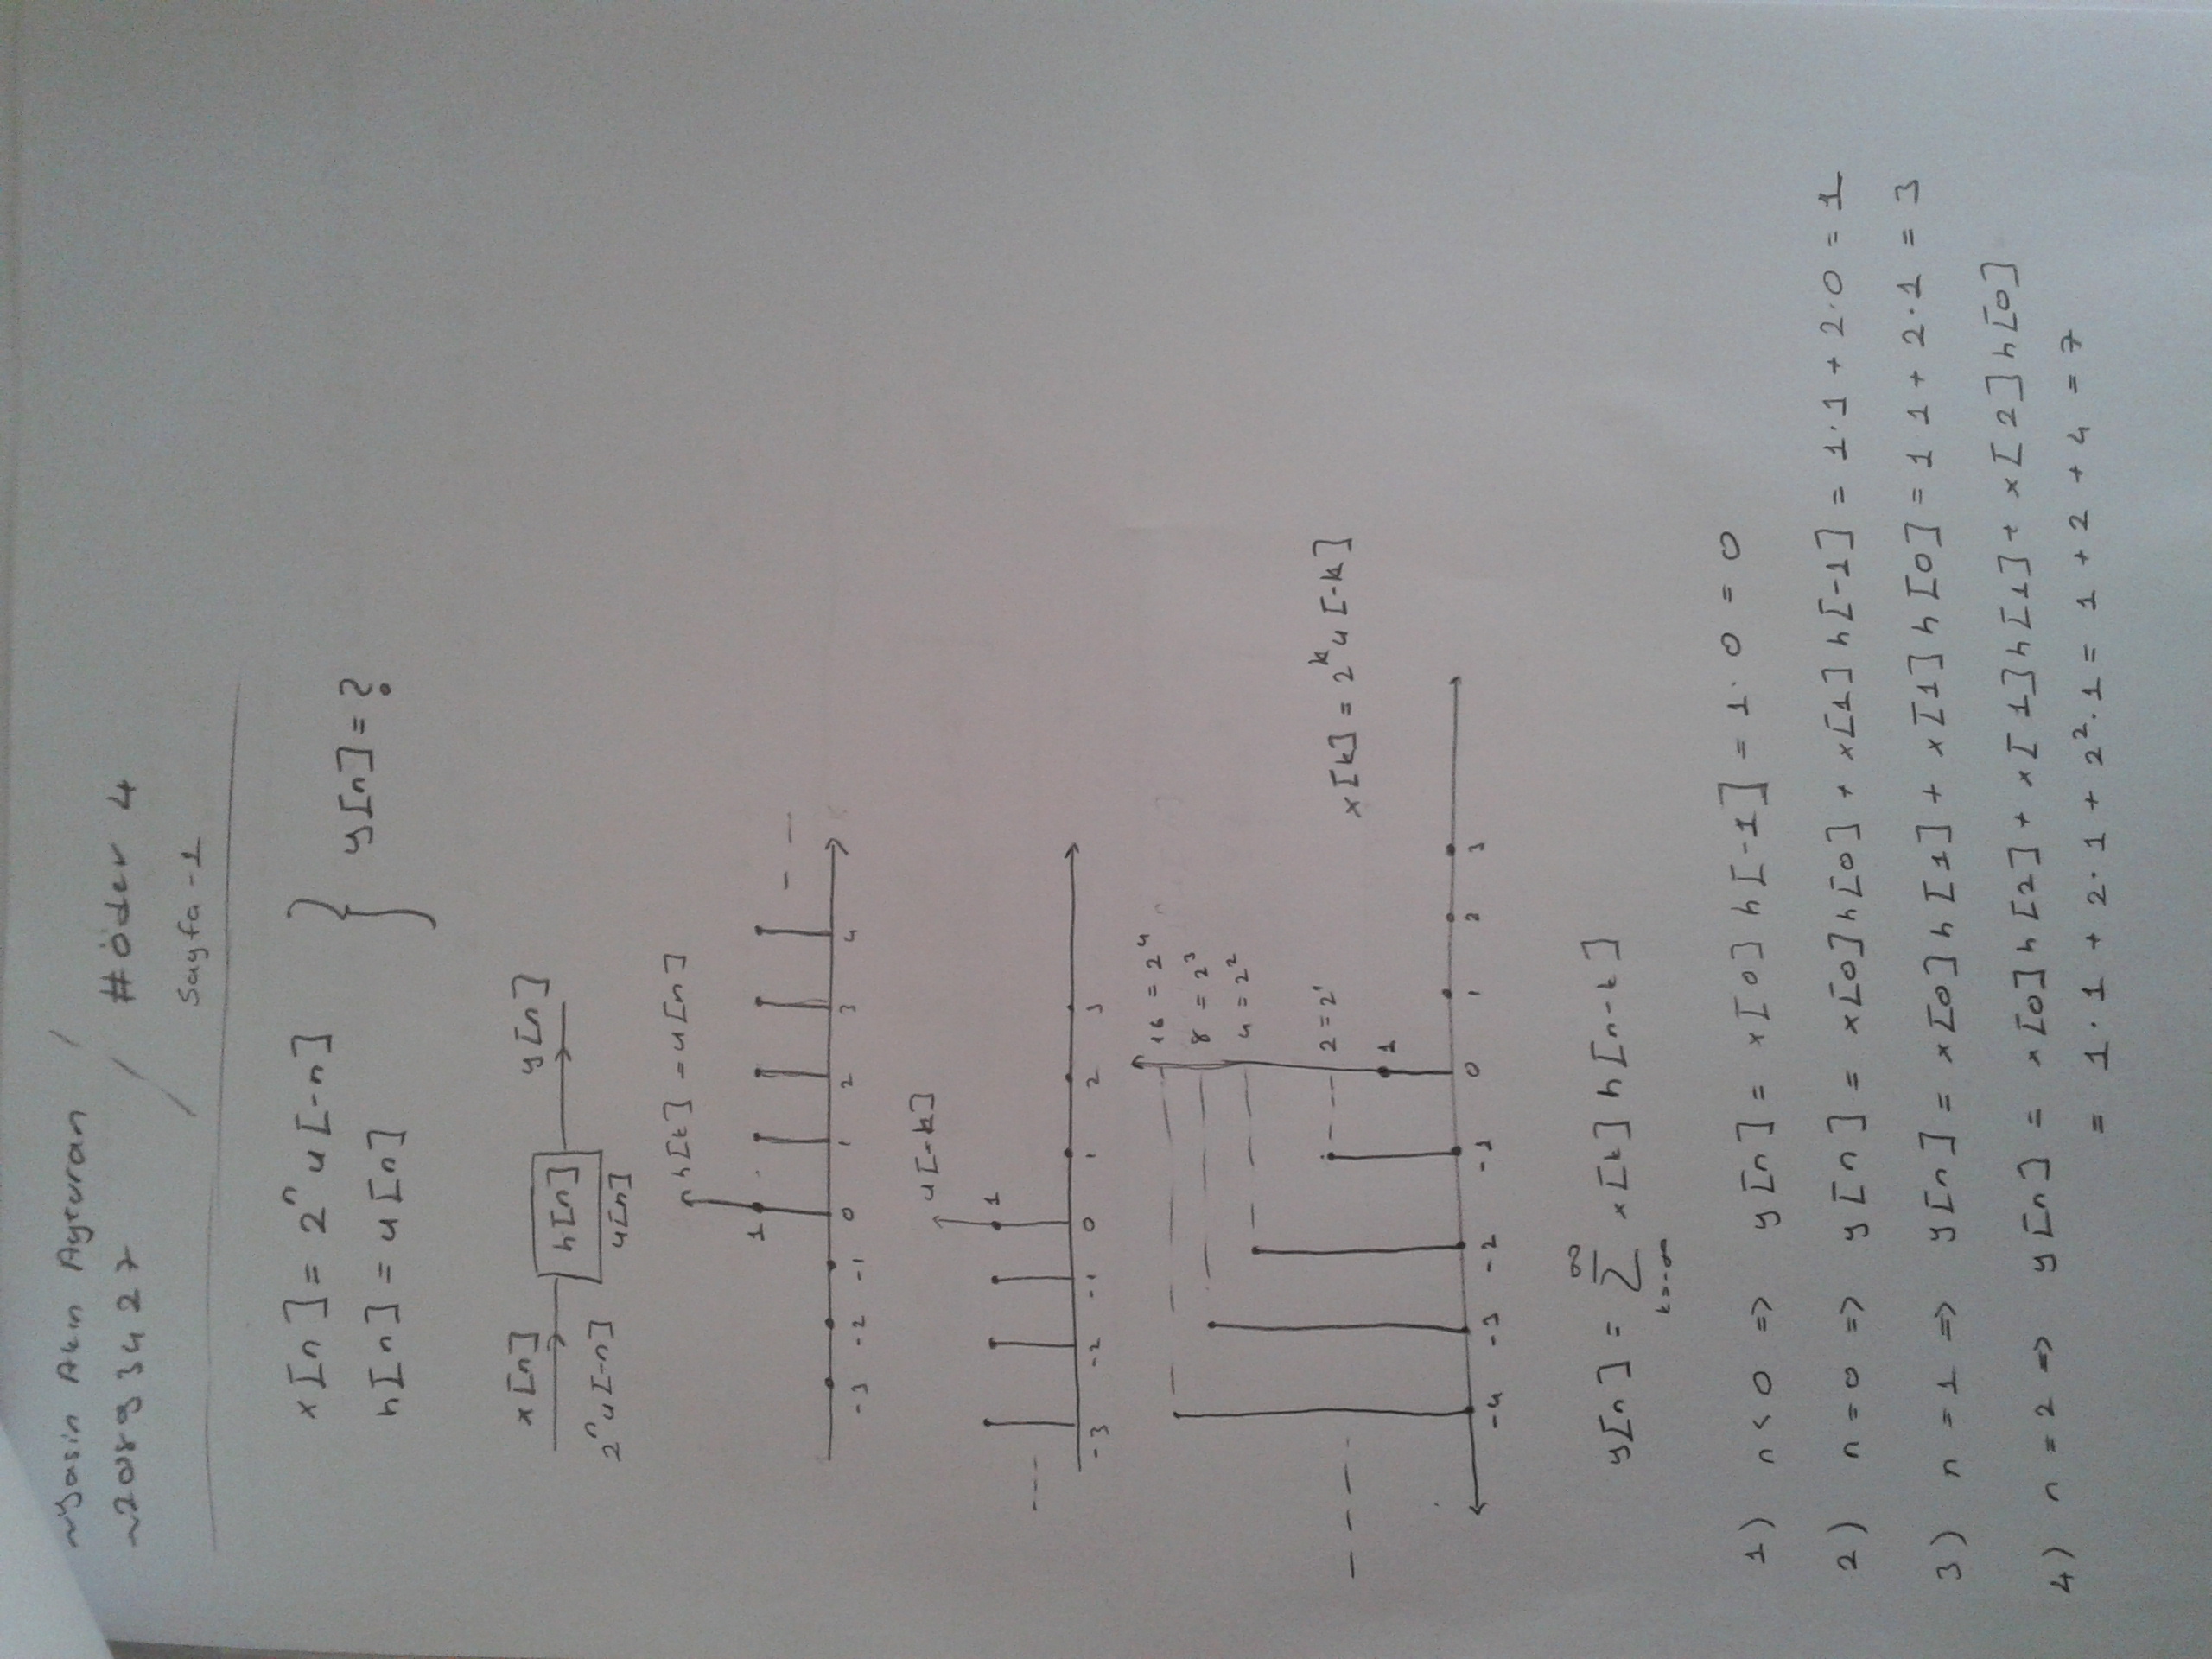 ~Yasin Akın Ayturan
~20893427
#öder 4
Sayfa -1
x[n] = 2ⁿ u[-n]
h[n] = u[n]
} y[n] = ?
x[n] y[n]
h[n]
2ⁿu[-n] u[n]
h[k] = u[n]
1
-3 -2 -1 0 1 2 3 4
u[-k]
1
-3 -2 -1 0 1 2 3
16 = 2⁴
8 = 2³
4 = 2²
2 = 2¹
x[k] = 2ᵏ u[-k]
1
-4 -3 -2 -1 0 1 2 3
y[n] = ∞ Σ k=-∞ x[k] h[n-k]
1) n < 0 => y[n] = x[0] h[-1] = 1 . 0 = 0
2) n = 0 => y[n] = x[0]h[0] + x[1] h[-1] = 1.1 + 2.0 = 1
3) n = 1 => y[n] = x[0]h[1] + x[1]h[0] = 1 1 + 2.1 = 3
4) n = 2 => y[n] = x[0]h[2] + x[1]h[1] + x[2]h[0]
= 1 . 1 + 2 . 1 + 2² . 1 = 1 + 2 + 4 = 7